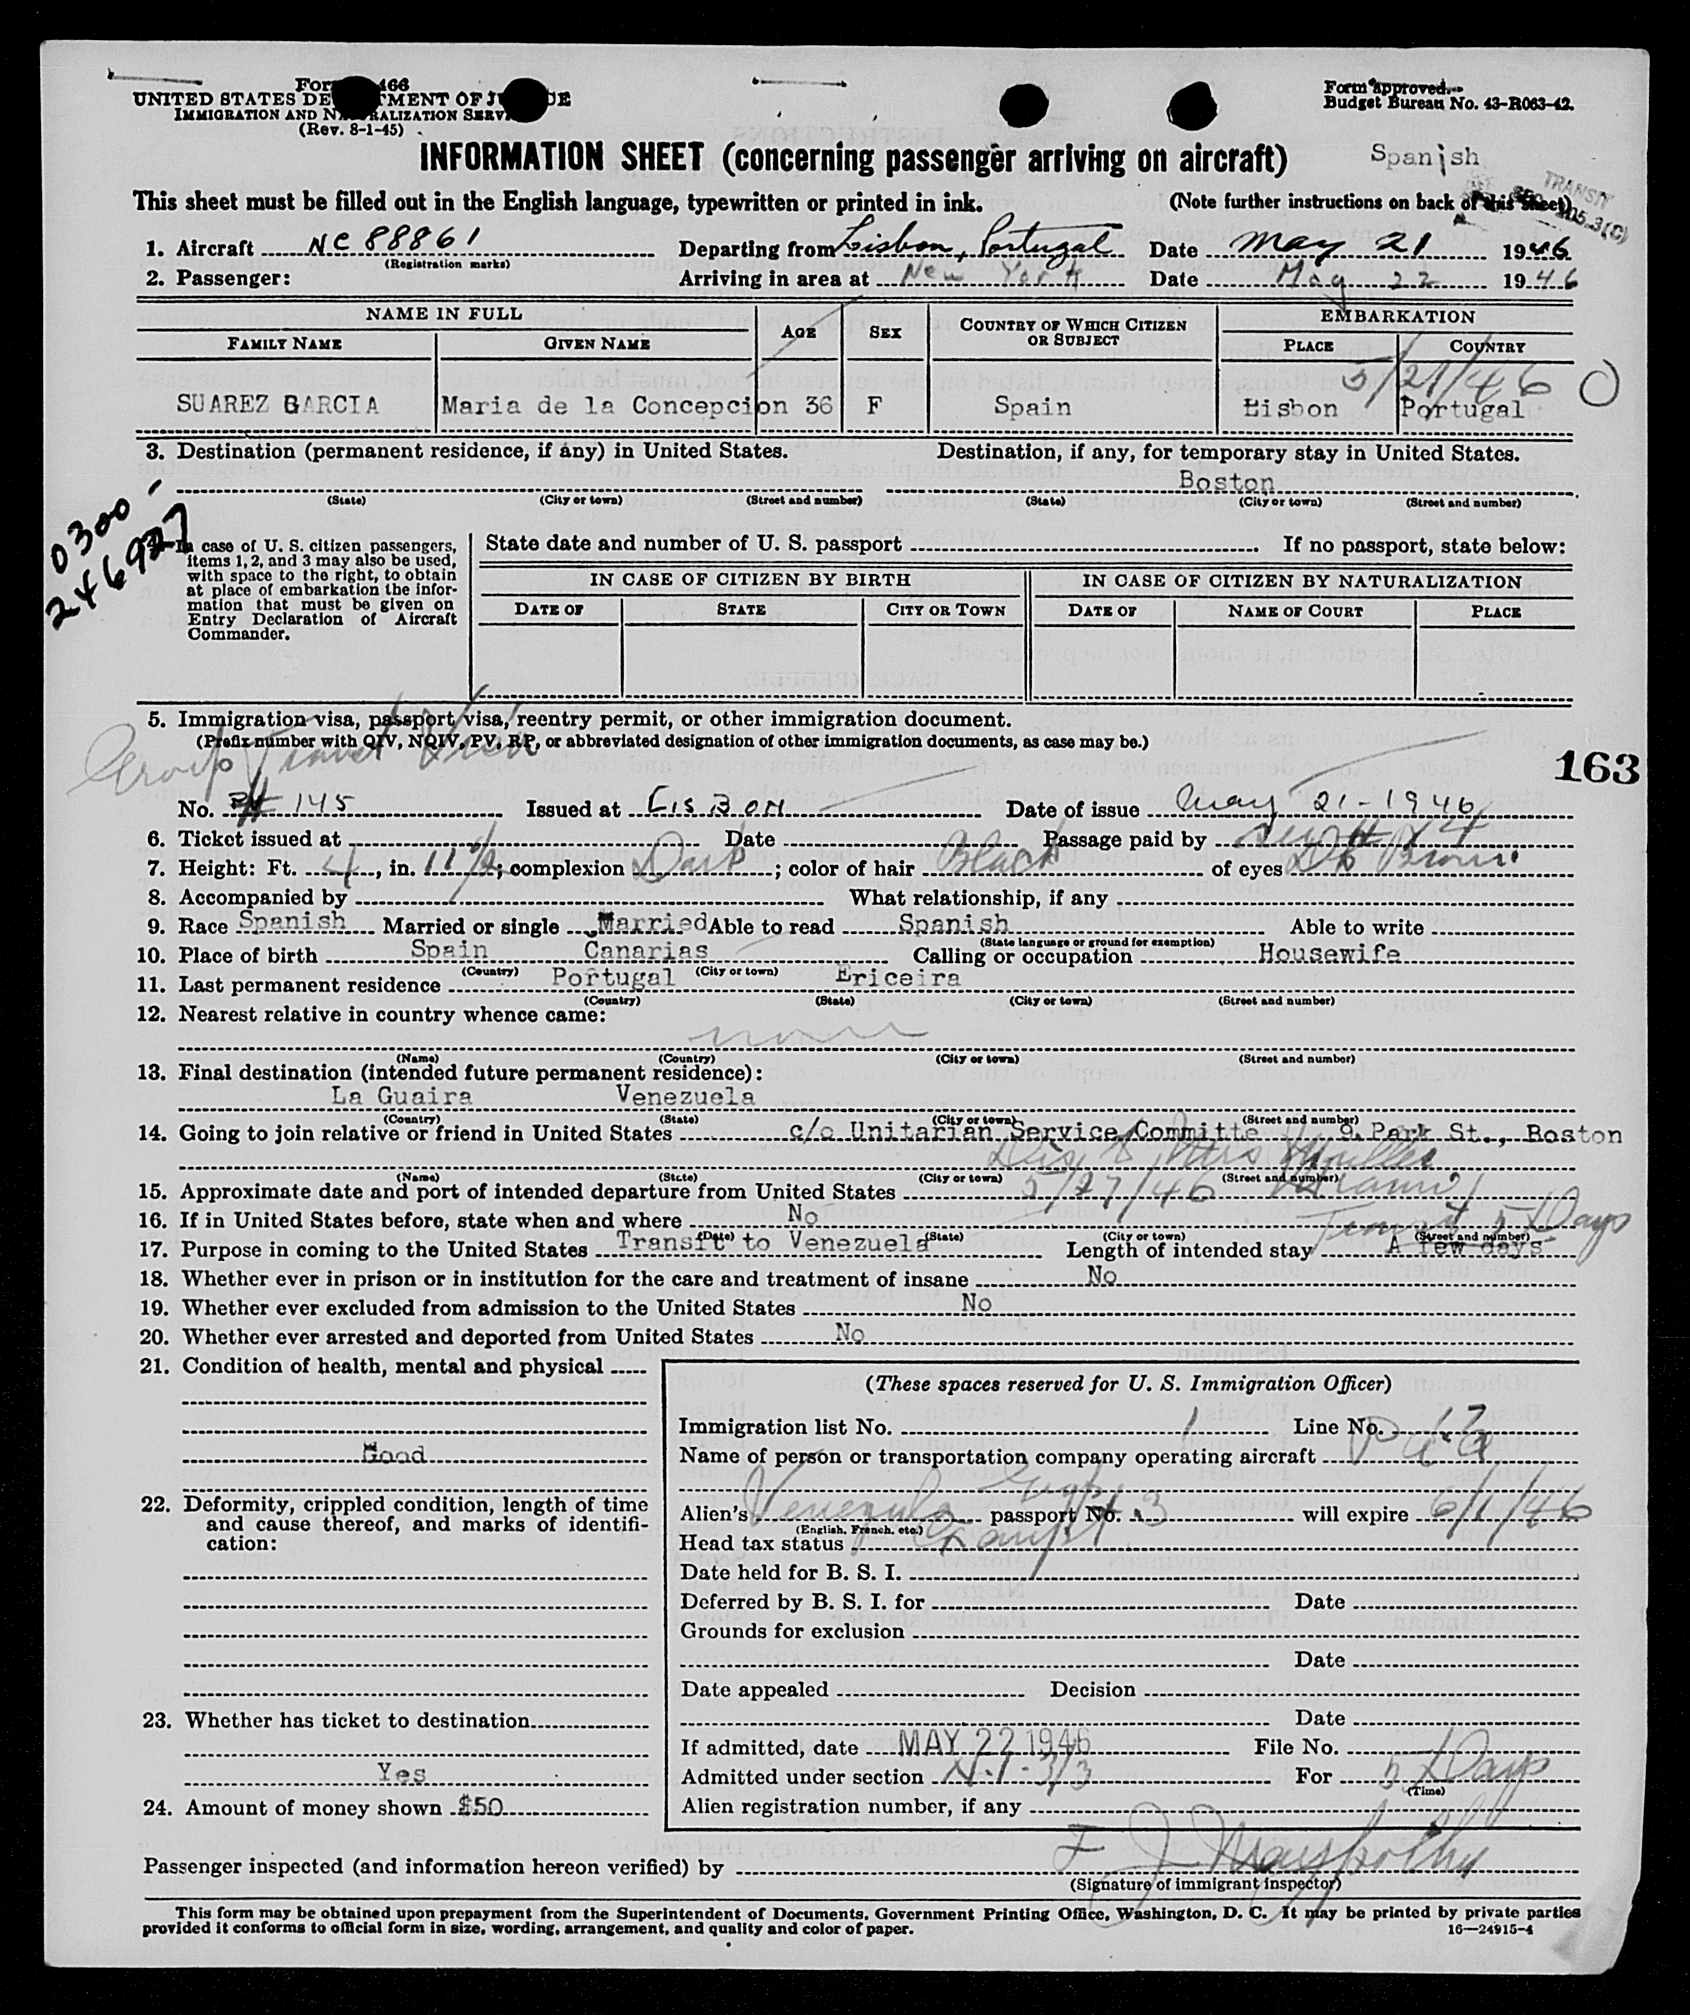 Form 466
UNITED STATES DEPARTMENT OF JUSTICE
IMMIGRATION AND NATURALIZATION SERVICE
(Rev. 8-1-45)
Form approved.
Budget Bureau No. 43-R063-42.
INFORMATION SHEET (concerning passenger arriving on aircraft)
Spanish
TRANSIT
This sheet must be filled out in the English language, typewritten or printed in ink. (Note further instructions on back of this sheet)
105.3(C)
1. Aircraft NC 88861 Departing from Lisbon, Portugal Date May 21 1946
(Registration marks)
2. Passenger: Arriving in area at New York Date May 22 1946
NAME IN FULL AGE SEX COUNTRY OF WHICH CITIZEN OR SUBJECT EMBARKATION
FAMILY NAME GIVEN NAME PLACE COUNTRY
5/21/46 O
SUAREZ GARCIA Maria de la Concepcion 36 F Spain Lisbon Portugal
3. Destination (permanent residence, if any) in United States. Destination, if any, for temporary stay in United States.
Boston
(State) (City or town) (Street and number) (State) (City or town) (Street and number)
0300-
246927
4. In case of U. S. citizen passengers, items 1, 2, and 3 may also be used, with space to the right, to obtain at place of embarkation the information that must be given on Entry Declaration of Aircraft Commander.
State date and number of U. S. passport If no passport, state below:
IN CASE OF CITIZEN BY BIRTH IN CASE OF CITIZEN BY NATURALIZATION
DATE OF STATE CITY OR TOWN DATE OF NAME OF COURT PLACE
5. Immigration visa, passport visa, reentry permit, or other immigration document.
(Prefix number with QIV, NQIV, PV, RP, or abbreviated designation of other immigration documents, as case may be.)
Group Transit Visa
163
No. 145 Issued at LISBON Date of issue May 21-1946
6. Ticket issued at Date Passage paid by
7. Height: Ft. 4, in. 11 1/2; complexion Dark; color of hair Black of eyes Dk Brown
8. Accompanied by What relationship, if any
9. Race Spanish Married or single Married Able to read Spanish Able to write
(State language or ground for exemption)
10. Place of birth Spain Canarias Calling or occupation Housewife
(Country) (City or town)
11. Last permanent residence Portugal Ericeira
(Country) (State) (City or town) (Street and number)
12. Nearest relative in country whence came:
none
(Name) (Country) (City or town) (Street and number)
13. Final destination (intended future permanent residence):
La Guaira Venezuela
(Country) (State) (City or town) (Street and number)
14. Going to join relative or friend in United States c/o Unitarian Service Committe 9 Park St., Boston
(Name) (State) (City or town) (Street and number)
15. Approximate date and port of intended departure from United States 5/27/46 Miami
16. If in United States before, state when and where No
Transit 5 Days
(Date) (State) (City or town) (Street and number)
17. Purpose in coming to the United States Transit to Venezuela Length of intended stay A few days
18. Whether ever in prison or in institution for the care and treatment of insane No
19. Whether ever excluded from admission to the United States No
20. Whether ever arrested and deported from United States No
21. Condition of health, mental and physical
Good
22. Deformity, crippled condition, length of time and cause thereof, and marks of identification:
23. Whether has ticket to destination
Yes
24. Amount of money shown $50
(These spaces reserved for U. S. Immigration Officer)
Immigration list No. 1 Line No. 13
Name of person or transportation company operating aircraft P a a
Alien's Venezuela passport No. 13 will expire 6/1/46
(English, French, etc.)
Head tax status Exempt
Date held for B. S. I.
Deferred by B. S. I. for Date
Grounds for exclusion
Date
Date appealed Decision
Date
If admitted, date MAY 22 1946 File No.
Admitted under section N.I. 3/3 For 5 Days
(Time)
Alien registration number, if any
Passenger inspected (and information hereon verified) by F J
(Signature of immigrant inspector)
This form may be obtained upon prepayment from the Superintendent of Documents, Government Printing Office, Washington, D. C. It may be printed by private parties
provided it conforms to official form in size, wording, arrangement, and quality and color of paper.
16—24915-4